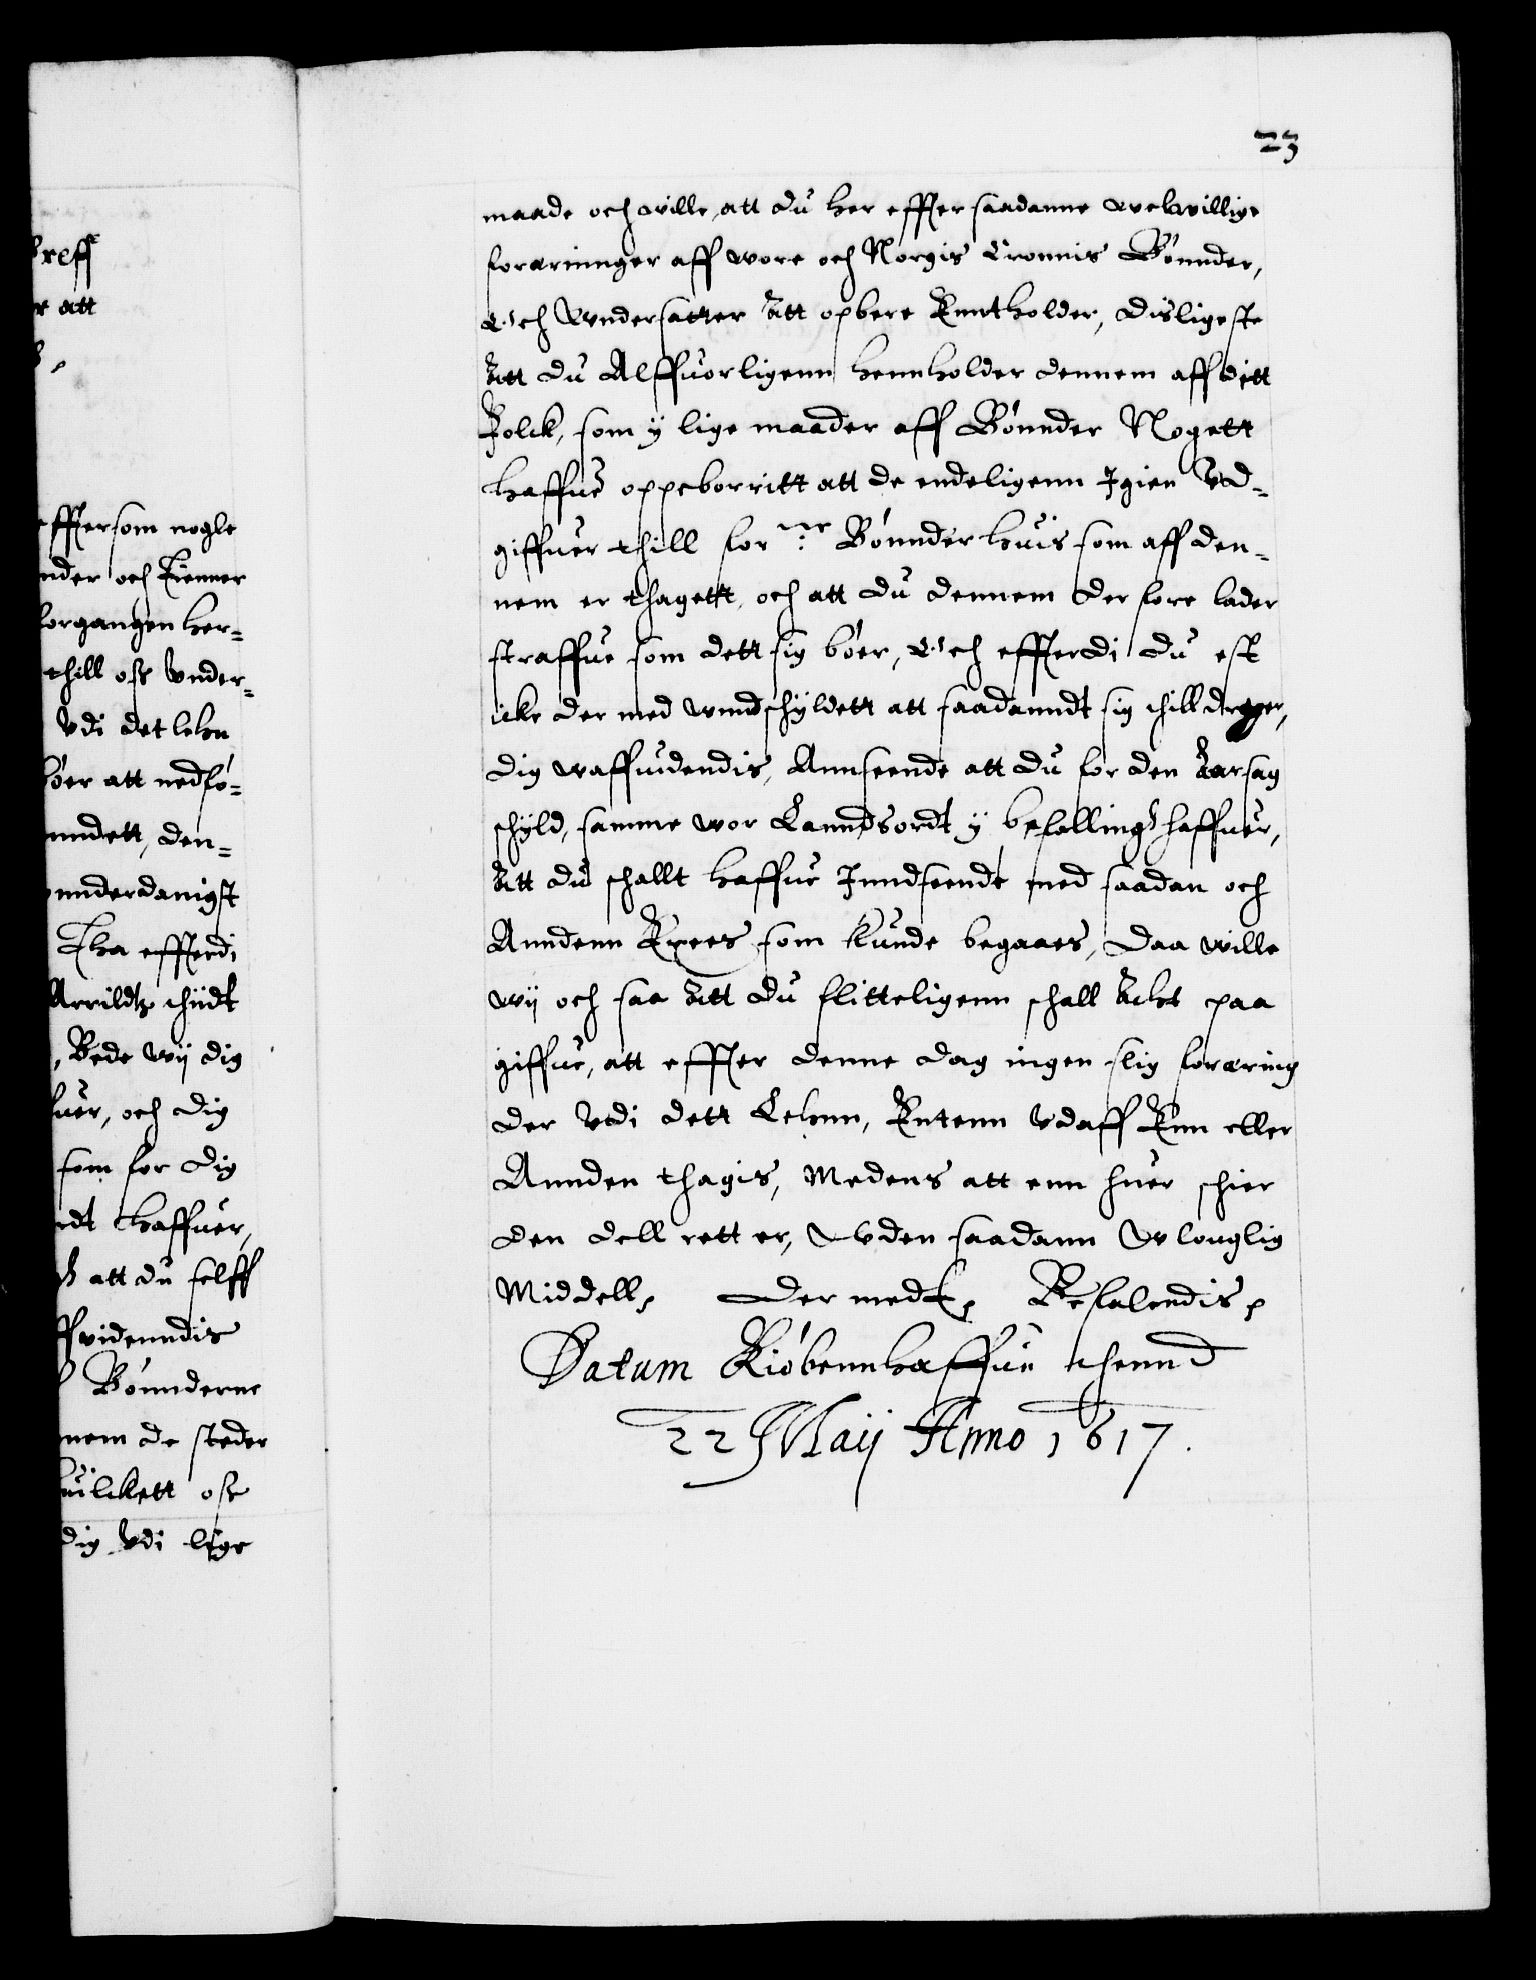 23
maade och wille, att du her effter saadanne welwillige
foræringer aff wore och Norgis Cronnis Bønnder,
Och Wndersatter Att opbere Enntholder, disligeste
Att du Alffuorligenn hennholder dennem aff ditt
Folck, som ÿ lige maader aff Bønnder Nogett
haffue oppeborritt att de endeligenn Igien Vd-
giffuer thill forne: Bønnder huis som aff den-
nem er thagett, och att du dennem der fore lader
straffue som dett sig bøer, Och effterdi du est
icke der med wnndschÿldett att saadanndt sig thill drager,
dig waffuidendis, Annseende att du for den Aarsag
schÿld, samme wor Lanndsordt ÿ befalling haffuer,
Att du schallt haffue Inndseende med saadan och
Anndenn Exces som kunde begaaes, Daa wille
wij och saa Att du flitteligenn schall Acht paa
giffue, att effter denne dag ingen slig foræring
der Vdi dett Lehnn, Entenn Vdaff Enn eller
Annden thagis, Medens att enn huer scheer
den dell rett er, Vden saadann Wlouglig
Middell, Der medt, Befalendis,
Datum Kiøbennhaffue thennd
22 Maij Anno 1617.
breff
att
efftersom nogle
nder och Tienner
forganngen her-
thill oss Vnder-
Vdi det lehn
bøer att nedfø-
nndett, den-
vnnderdanigst
Tha effterdi
Arrildtz thiidt
, Bede wij dig
fuer, och dig
som for dig
ndt haffuer,
att du selff
ffuidenndis
Bønnderne
nem de steder
huilckett oss
dig Vdi lige